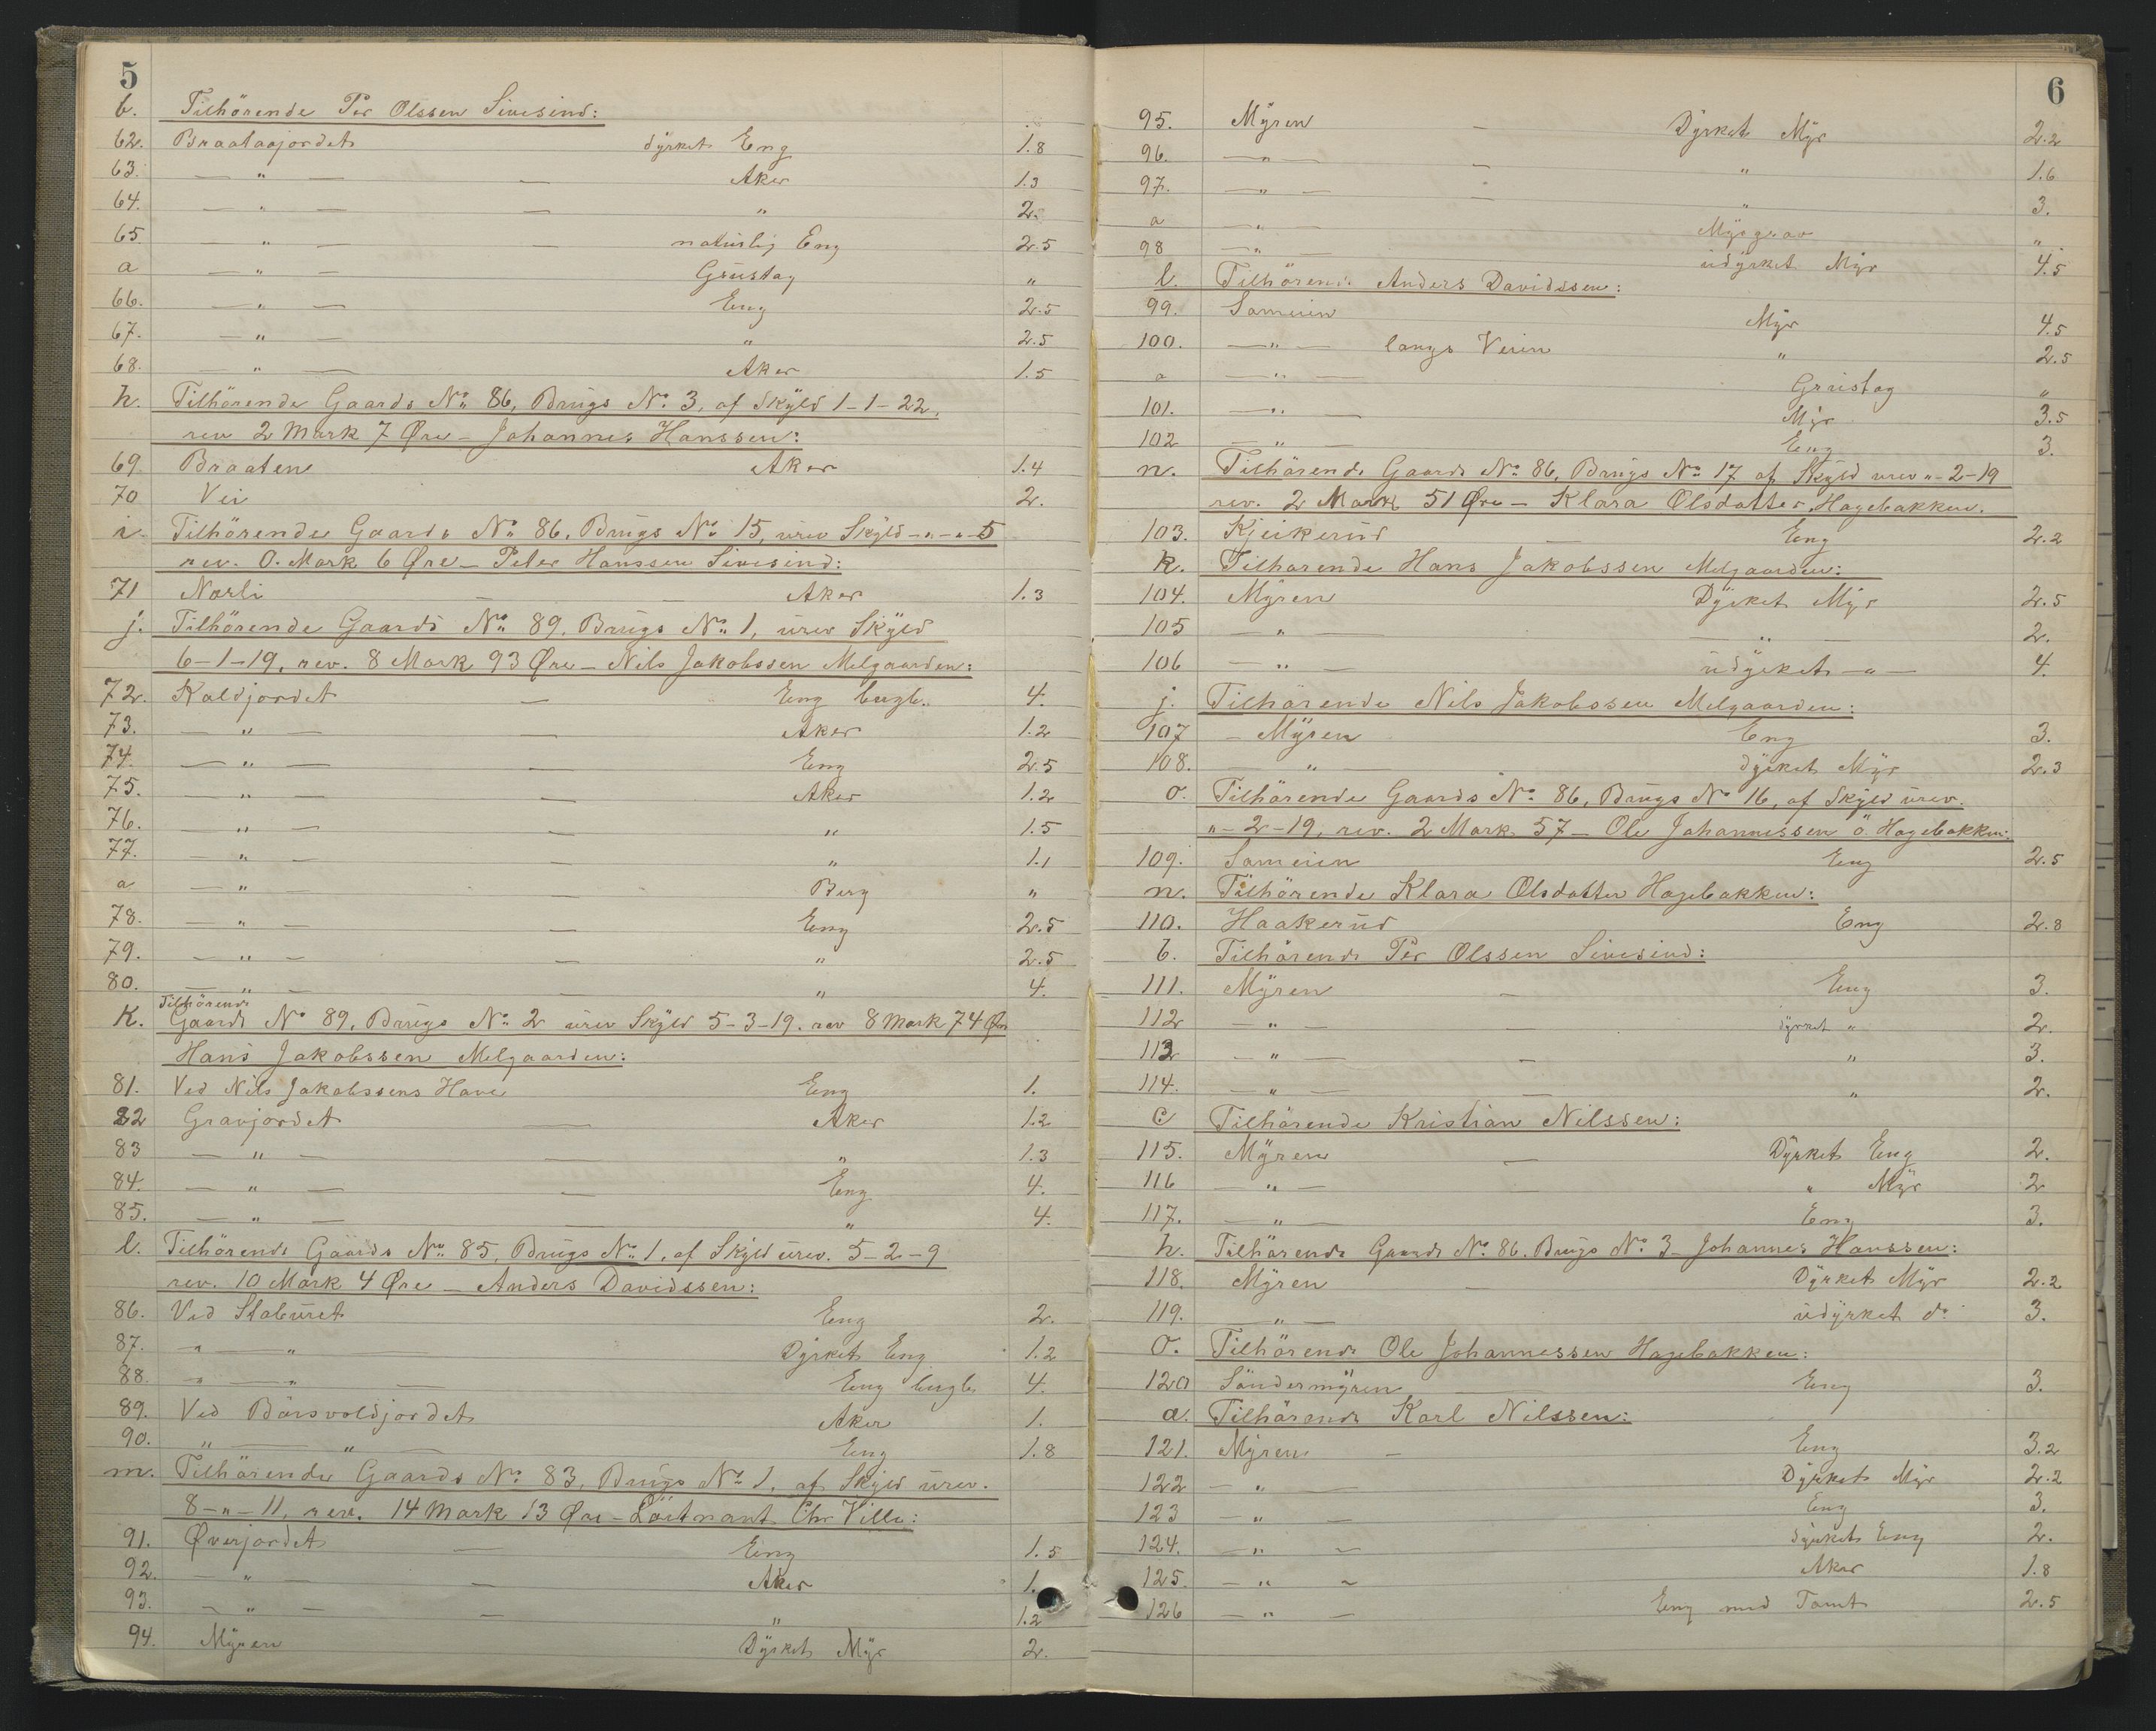 5
b. Tilhörende Per Olssen Sivesind:
62. Braataajordet dyrket Eng 1.8
63. — " — — Aker 1.3
64. — " — — " 2.
65 — " — — naturlig Eng 2.5
a — " — Grustag "
66. — " — Eng 2.5
67. — " — " 2.5
68. — " — Aker 1.5
h. Tilhörende Gaards No. 86, Brugs No. 3, af Skyld 1-1-22,
rev 2 Mark 7 Øre - Johannes Hanssen:
69. Braaten Aker 1.4
70 Vei 2.
i. Tilhörende Gaards No. 86, Brugs No. 15, urev Skyld - " - " - 5
rev. 0. Mark 6 Øre - Peter Hanssen Sivesind:
71 Norli — Aker 1.3
j. Tilhörende Gaards No. 89. Brugs No. 1, urev Skyld
6-1-19, rev. 8 Mark 93 Øre - Nils Jakobssen Melgaarden:
72. Kaldjordet — Eng bergl. 4.
73. — " — — Aker 1.2
74. — " — — Eng 2.5
75. — " — — Aker 1.2
76. — " — — " 1.5
77. — " — — " 1.1
a — " — Berg "
78. — " — — Eng 2.5
79. — " — — " 2.5
80. — " — — " 4.
Tilhörende
k. Gaards No. 89, Brugs No. 2 urev Skyld 5-3-19. rev 8 Mark 74 Øre
Hans Jakobssen Melgaarden:
81. Ved Nils Jakobssens Have Eng 1.
82 Gravjordet — Aker 1.2
83 — " — — " 1.3
84. — " — — Eng 4.
85. — " — — " 4.
l. Tilhörende Gaards No. 85, Brugs No. 1, af Skyld urev. 5-2-9
rev. 10 Mark 4 Øre - Anders Davidssen:
86. Ved Staburet Eng 2.
87. " — " — Dyrket Eng 1.2
88. " — " — Eng bergl. 4.
89. Ved Börsvoldjordet Aker 1.
90. " — " — Eng 1.8
m. Tilhörende Gaards No. 83, Brugs No. 1, af Skyld urev.
8-"-11, rev. 14 Mark 13 Øre - Löitnant Chr Ville:
91. Øverjordet — Eng 1.5
92. — " — — Aker 1.
93. — " — — " 1.2
94. Myren Dyrket Myr 2.
6
95. Myren — Dyrket Myr 2.2
96. — " — — " 1.6
97. — " — — " 3.
a — " — Myrgrav "
98 — " — udyrket Myr 4.5
l. Tilhörende Anders Davidssen:
99. Sameien Myr 4.5
100. — " — langs Veien " 2.5
a — " — Grustag "
101. — " — Myr 3.5
102 — " — Eng 3.
n. Tilhörende Gaards No. 86, Brugs No. 17 af Skyld urev "-2-19
rev. 2 Mark 51 Øre - Klara Olsdatter Hagebakken.
103. Kjeikerud — Eng 2.2
k. Tilhörende Hans Jakobssen Melgaarden:
104. Myren Dyrket Myr 2.5
105 — " — — " — 2.
106 — " — udyrket — " — 4.
j. Tilhörende Nils Jakobssen Melgaarden:
107 - Myren Eng 3.
108. — " — dyrket Myr 2.3
o. Tilhörende Gaards No. 86, Brugs No. 16, af Skyld urev.
"-2-19, rev. 2 Mark 57 - Ole Johannessen ö. Hagebakken:
109. Sameien Eng 2.5
n. Tilhörende Klara Olsdatter Hagebakken:
110. Haakerud Eng 2.8
b. Tilhörende Per Olssen Sivesind:
111. Myren — Eng 3.
112 — " — dyrket " 2.
113 — " — — " 3.
114. — " — — " 2.
c Tilhörende Kristian Nilssen:
115. Myren — Dyrket Eng 2.
116 — " — — " Myr 2
117. — " — Eng 3.
h. Tilhörende Gaards No. 86. Brugs No. 3 - Johannes Hanssen:
118. Myren — Dyrket Myr 2.2
119. — " — udyrket do 3.
o. Tilhörende Ole Johannessen Hagebakken:
120 Söndermyren — Eng 3.
a. Tilhörende Karl Nilssen:
121. Myren — Eng 3.2
122 — " — Dyrket Myr 2.2
123 — " — Eng 3.
124. — " — dyrket Eng 2.
125. — " — Aker 1.8
126 — " — Eng med Tomt 2.5